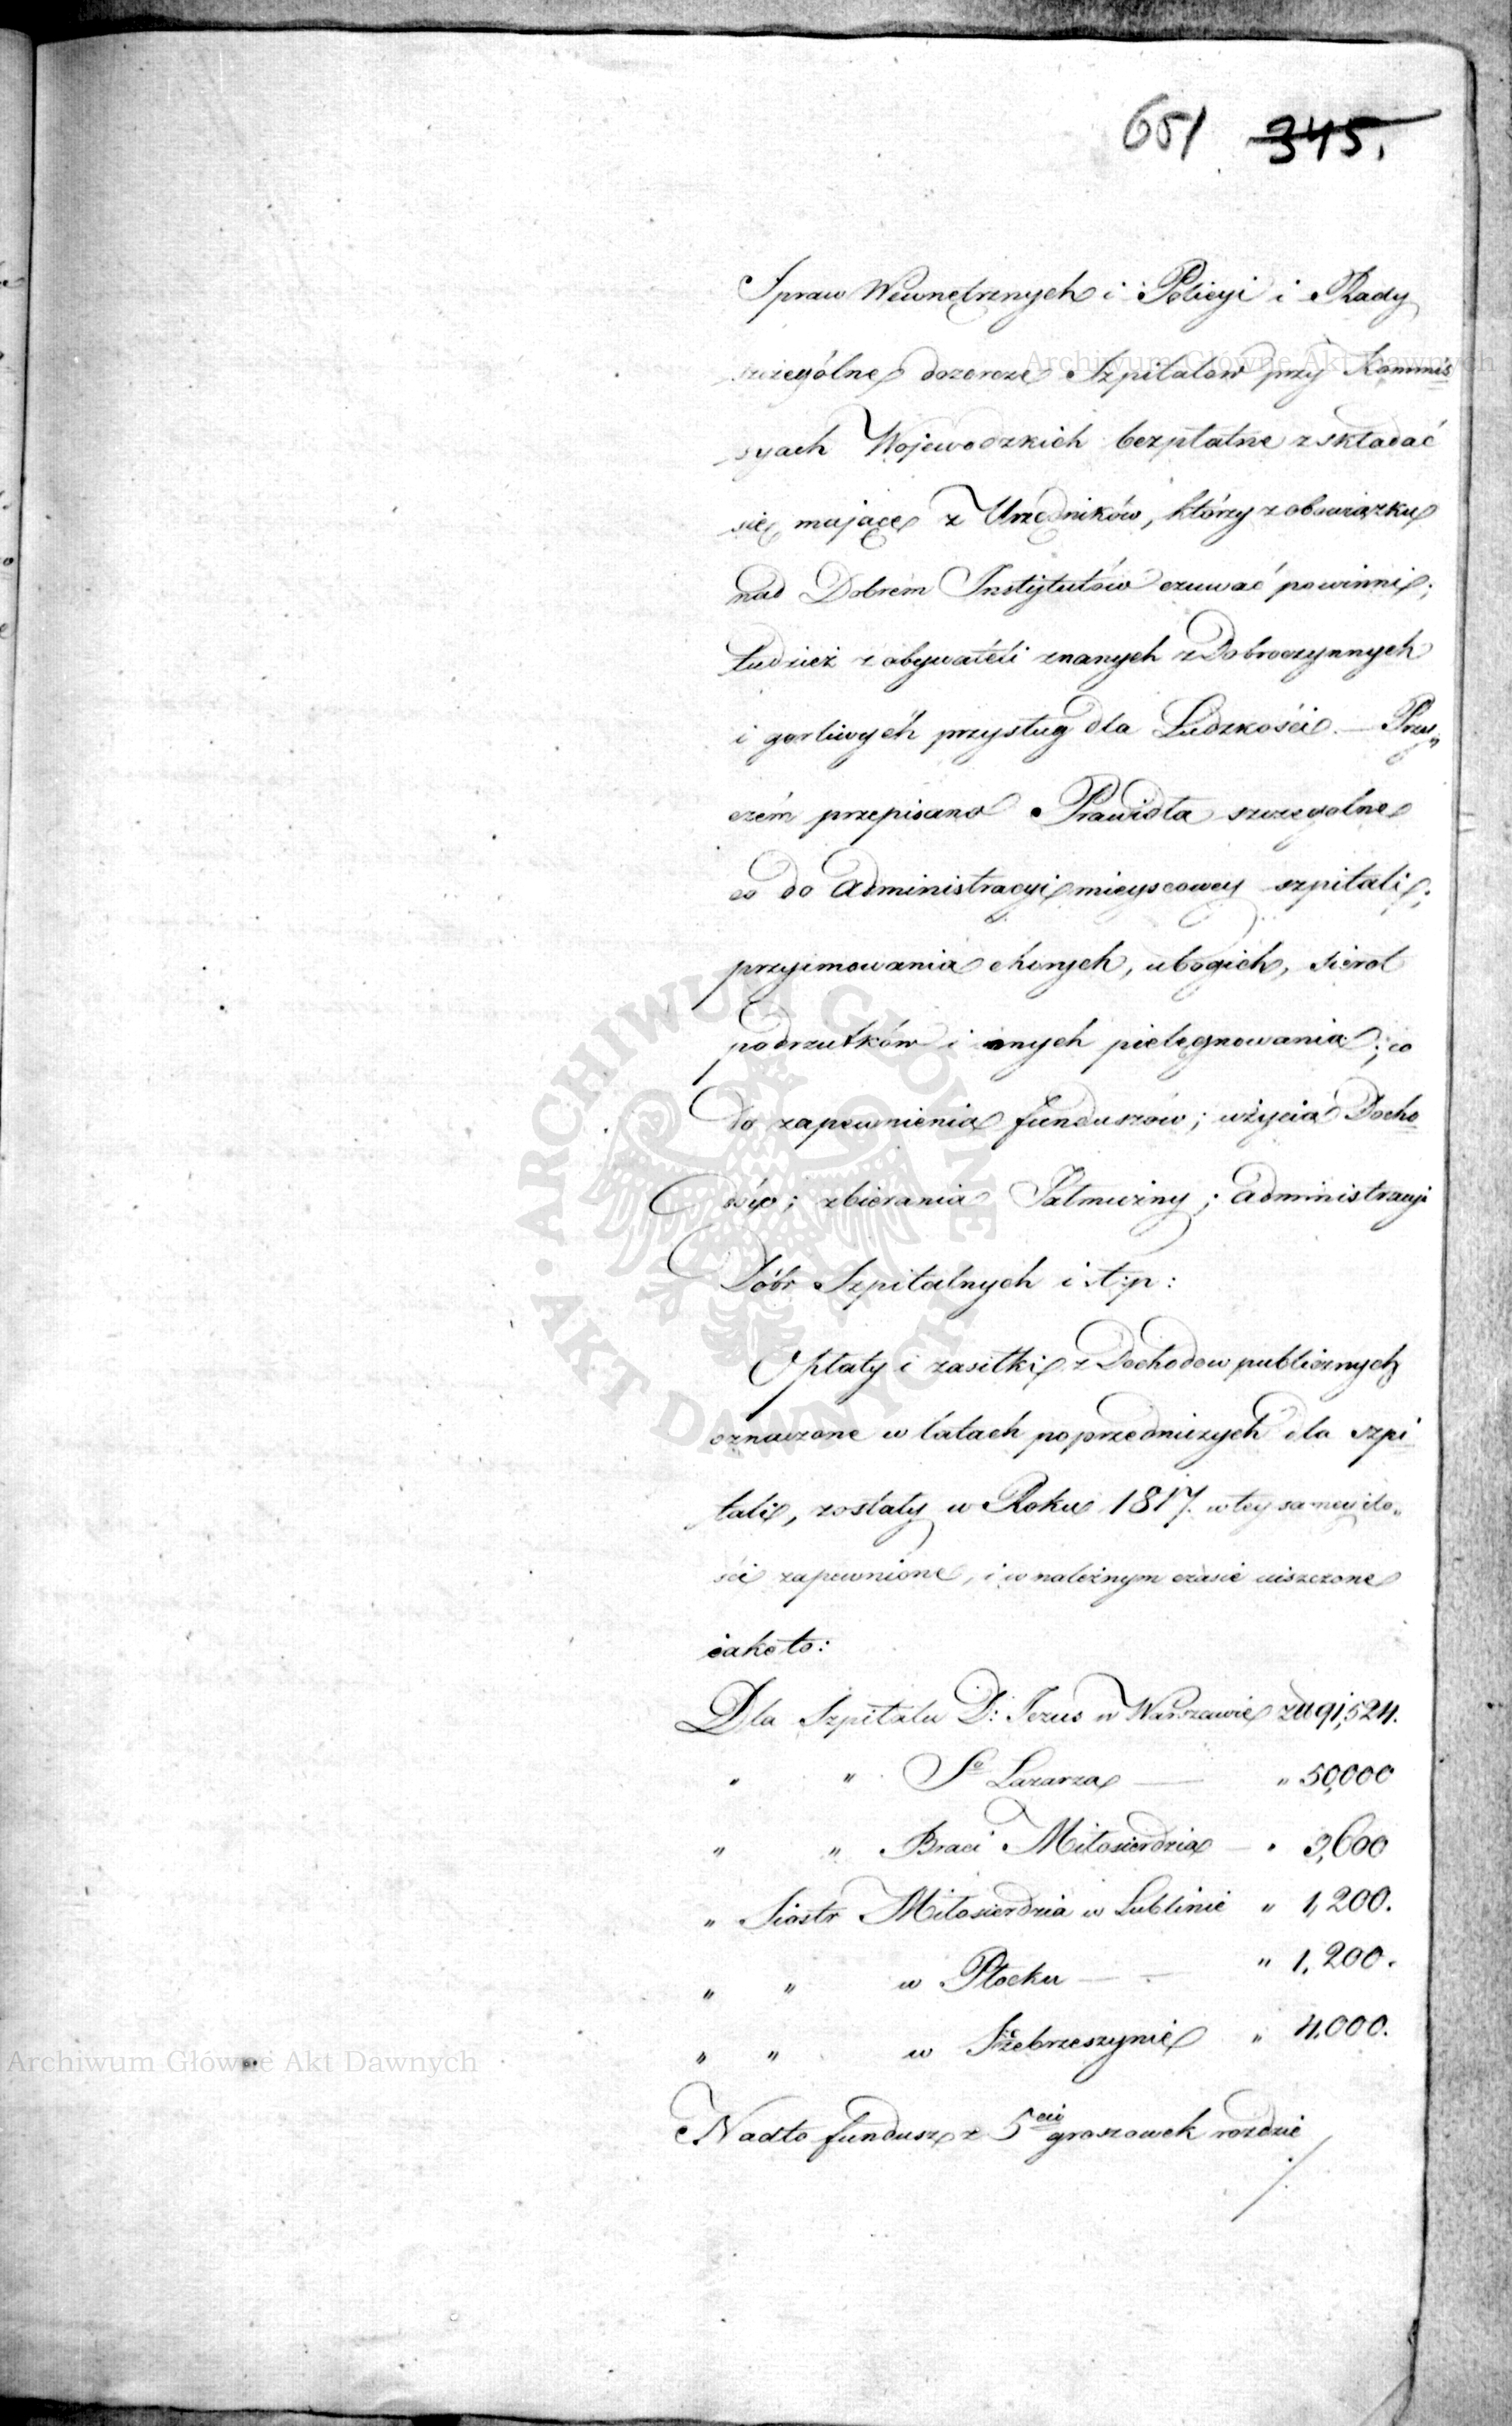 651 345.
Spraw Wewnętrznych i Policyi i Rady
szczególne dozorcze Szpitalów przy Kommis
syach Wojewodzkich bezpłatne zskładać
się mające z Urzędników, którzy z obowiązku
nad Dobrem Instytutów czuwać powinni;
tudzież z obywateli znanych z Dobroczynnych
i gorliwych przysług dla Ludzkości. — Przy„
czém przepisano Prawidła szczegolne
co do administracyi mieyscowey szpitali;
przyimowania chorych, ubogich, sierot
podrzutków i innych pielęgnowania; co
do zapewnienia funduszów; użycia Docho
dów; zbierania Jałmużny; administracyi
Dóbr Szpitalnych i t:p:
Opłaty i zasiłki z Dochodow publicznych
oznaczone w latach poprzedniczych dla szpi
tali, zostały w Roku 1817. w tey samey ilo„
ści zapewnione, i w należnym czasie uiszczone
iako to:
Dla Szpitalu D: Jezus w Warszawie zł 91,524.
" " Sº Lazarza — " 50,000
" " Braci Miłosierdzia — " 3,600
" Siostr Miłosierdzia w Lublinie " 1,200.
" " w Płocku — — " 1,200.
" " w Szczebrzeszynie " 4,000.
Nadto fundusz z 5ciu groszowek rozdzie
./.
Archiwum Główne Akt Dawnych
Archiwum Główne Akt Dawnych
ARCHIWUM GŁÓWNE AKT DAWNYCH